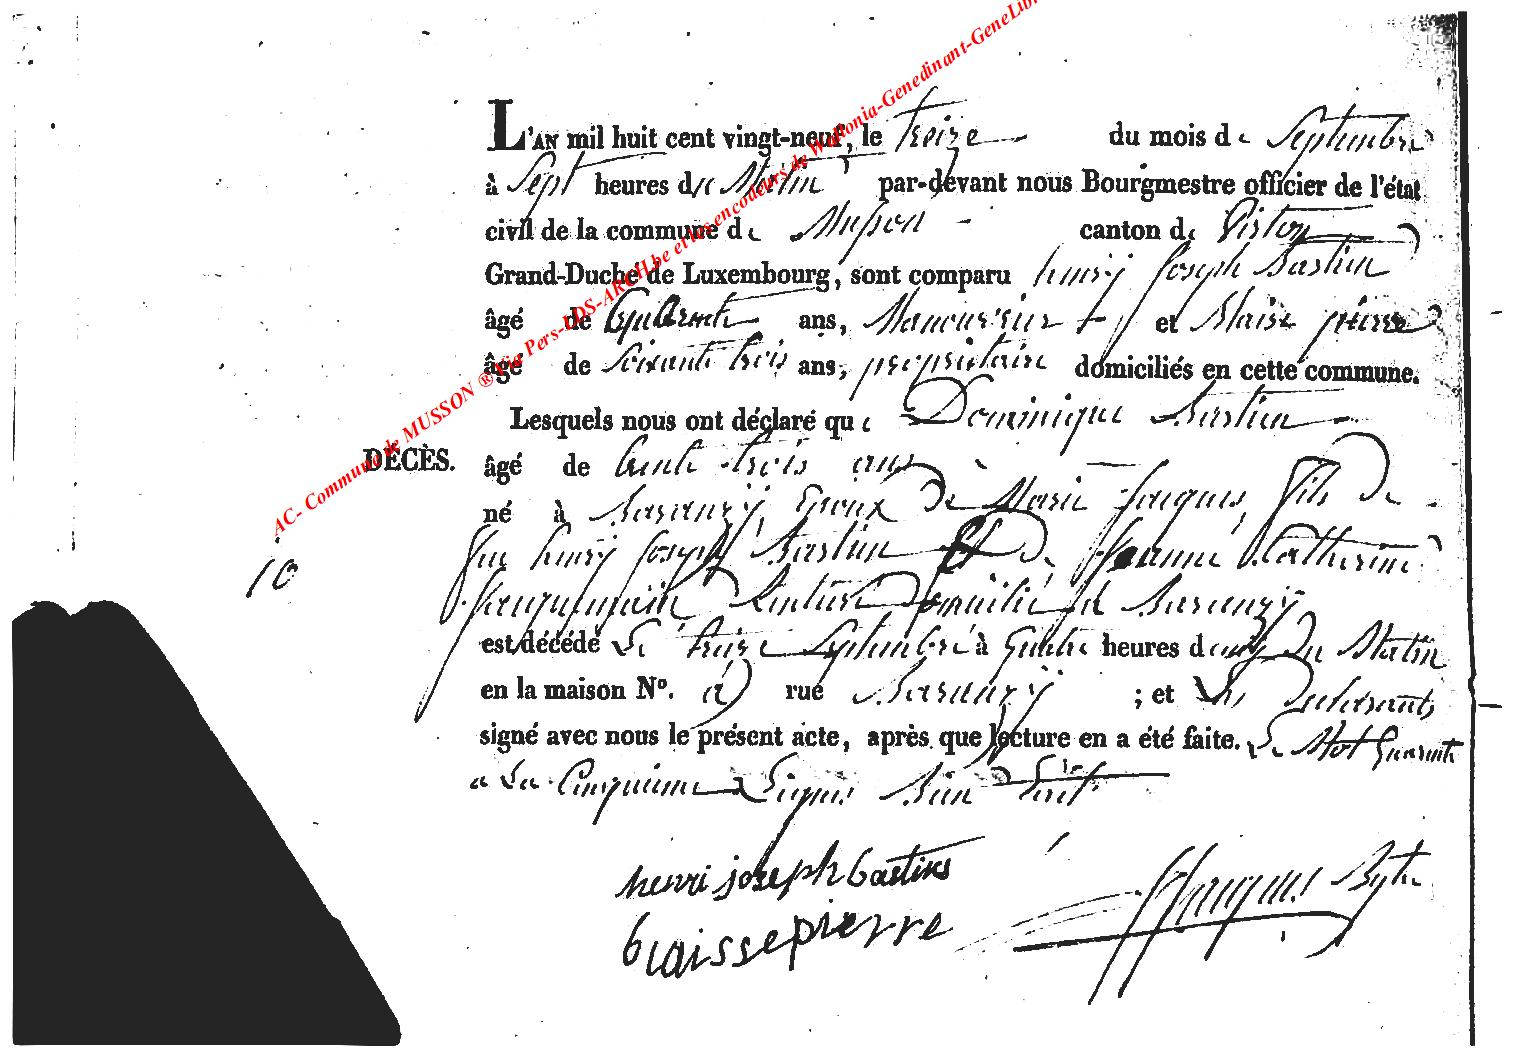 AC- Commune de MUSSON ® Via Pers-LDS-ARCH.be et les encodeurs de Wallonia-Genedinant-GeneLib
L'AN mil huit cent vingt-neuf, le treize du mois de Septembre
à Sept heures du Matin par-devant nous Bourgmestre officier de l'état
civil de la commune de Musson canton de Virton
Grand-Duché de Luxembourg, sont comparu henry Joseph Bastin
âgé de quarante ans, Manouvrier et Blaise pierre
âgé de Soixante trois ans, propriétaire domiciliés en cette commune.
Lesquels nous ont déclaré que Dominique Bastien
DÉCÈS.
âgé de trente trois ans
né à Baranzy, Epoux de Marie Jacques, fils de
feu henry Joseph Bastin Et de Jeanne Catherine
Domicilié à Baranzy
est décédé Le treize Septembre à quatre heures du Matin
en la maison Nº. rue Baranzy ; et Les Déclarants
signé avec nous le présent acte, après que lecture en a été faite. Le Mot quarante
a La Cinquieme Ligne Bien Ecrit
10
henri joseph bastins
blaisse pierre